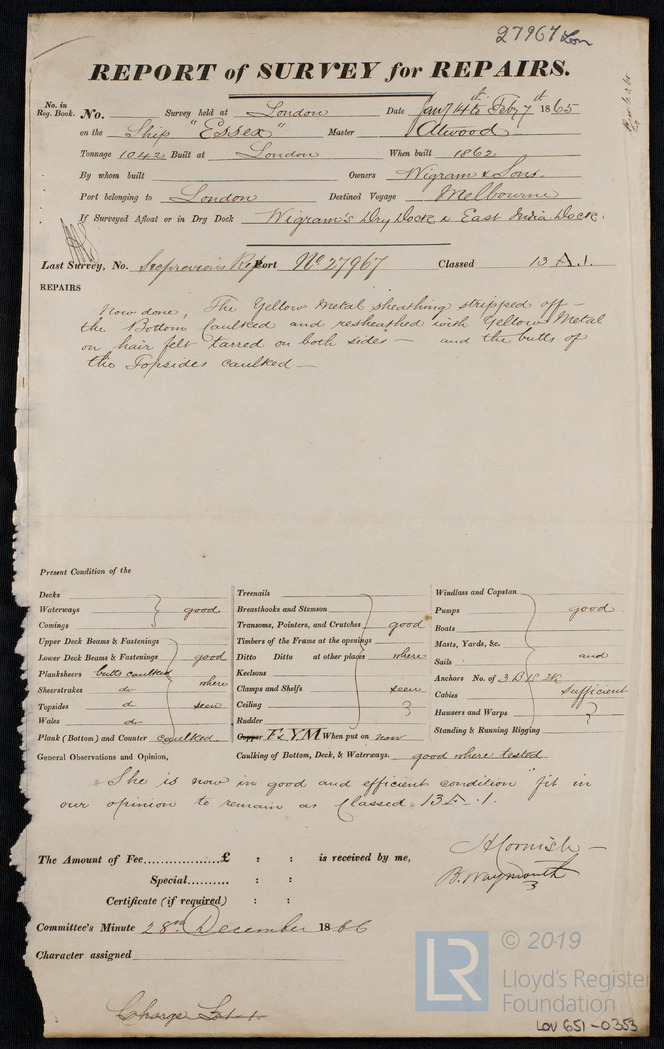 27967 Lon
REPORT of SURVEY for REPAIRS.
No. in Reg. Book. No. Survey held at London Date Jany 14th to Feby 7th 1865
on the Ship "Essex" Master Atwood
Tonnage 1042 Built at London When built 1862
By whom built Owners Wigram & Sons
Port belonging to London Destined Voyage Melbourne
If Surveyed Afloat or in Dry Dock Wigram's Dry Dock & East India Dock.
Last Survey, No. See previous Report No 27967 Classed 13 A.1.
REPAIRS
Now done, The Yellow Metal sheathing stripped off –
the Bottom Caulked and resheathed with Yellow Metal
on hair felt tarred on both sides – and the butts of
the Topsides caulked –
Present Condition of the
Decks
Waterways good
Comings
Upper Deck Beams & Fastenings
Lower Deck Beams & Fastenings good
Planksheers butts caulked where
Sheerstrakes do
Topsides do seen
Wales do
Plank (Bottom) and Counter caulked
Treenails
Breasthooks and Stemson
Transoms, Pointers, and Crutches good
Timbers of the Frame at the openings
Ditto Ditto at other places where
Keelsons
Clamps and Shelfs seen
Ceiling
Rudder
Copper F & Y.M When put on now
Windlass and Capstan
Pumps good
Boats
Masts, Yards, &c.
Sails and
Anchors No. of 3 B 1S 2K
Cables sufficient
Hawsers and Warps
Standing & Running Rigging
General Observations and Opinion, Caulking of Bottom, Deck, & Waterways. good where tested
She is now in good and efficient condition fit in
our opinion to remain as Classed 13 A.1.
H Cornish
B. Waymouth
The Amount of Fee................£ : : is received by me,
Special.......... : :
Certificate (if required) : :
Committee's Minute 28th December 1866
Character assigned
Charge
© 2019
LR Lloyd's Register
Foundation
LOV 651-0353